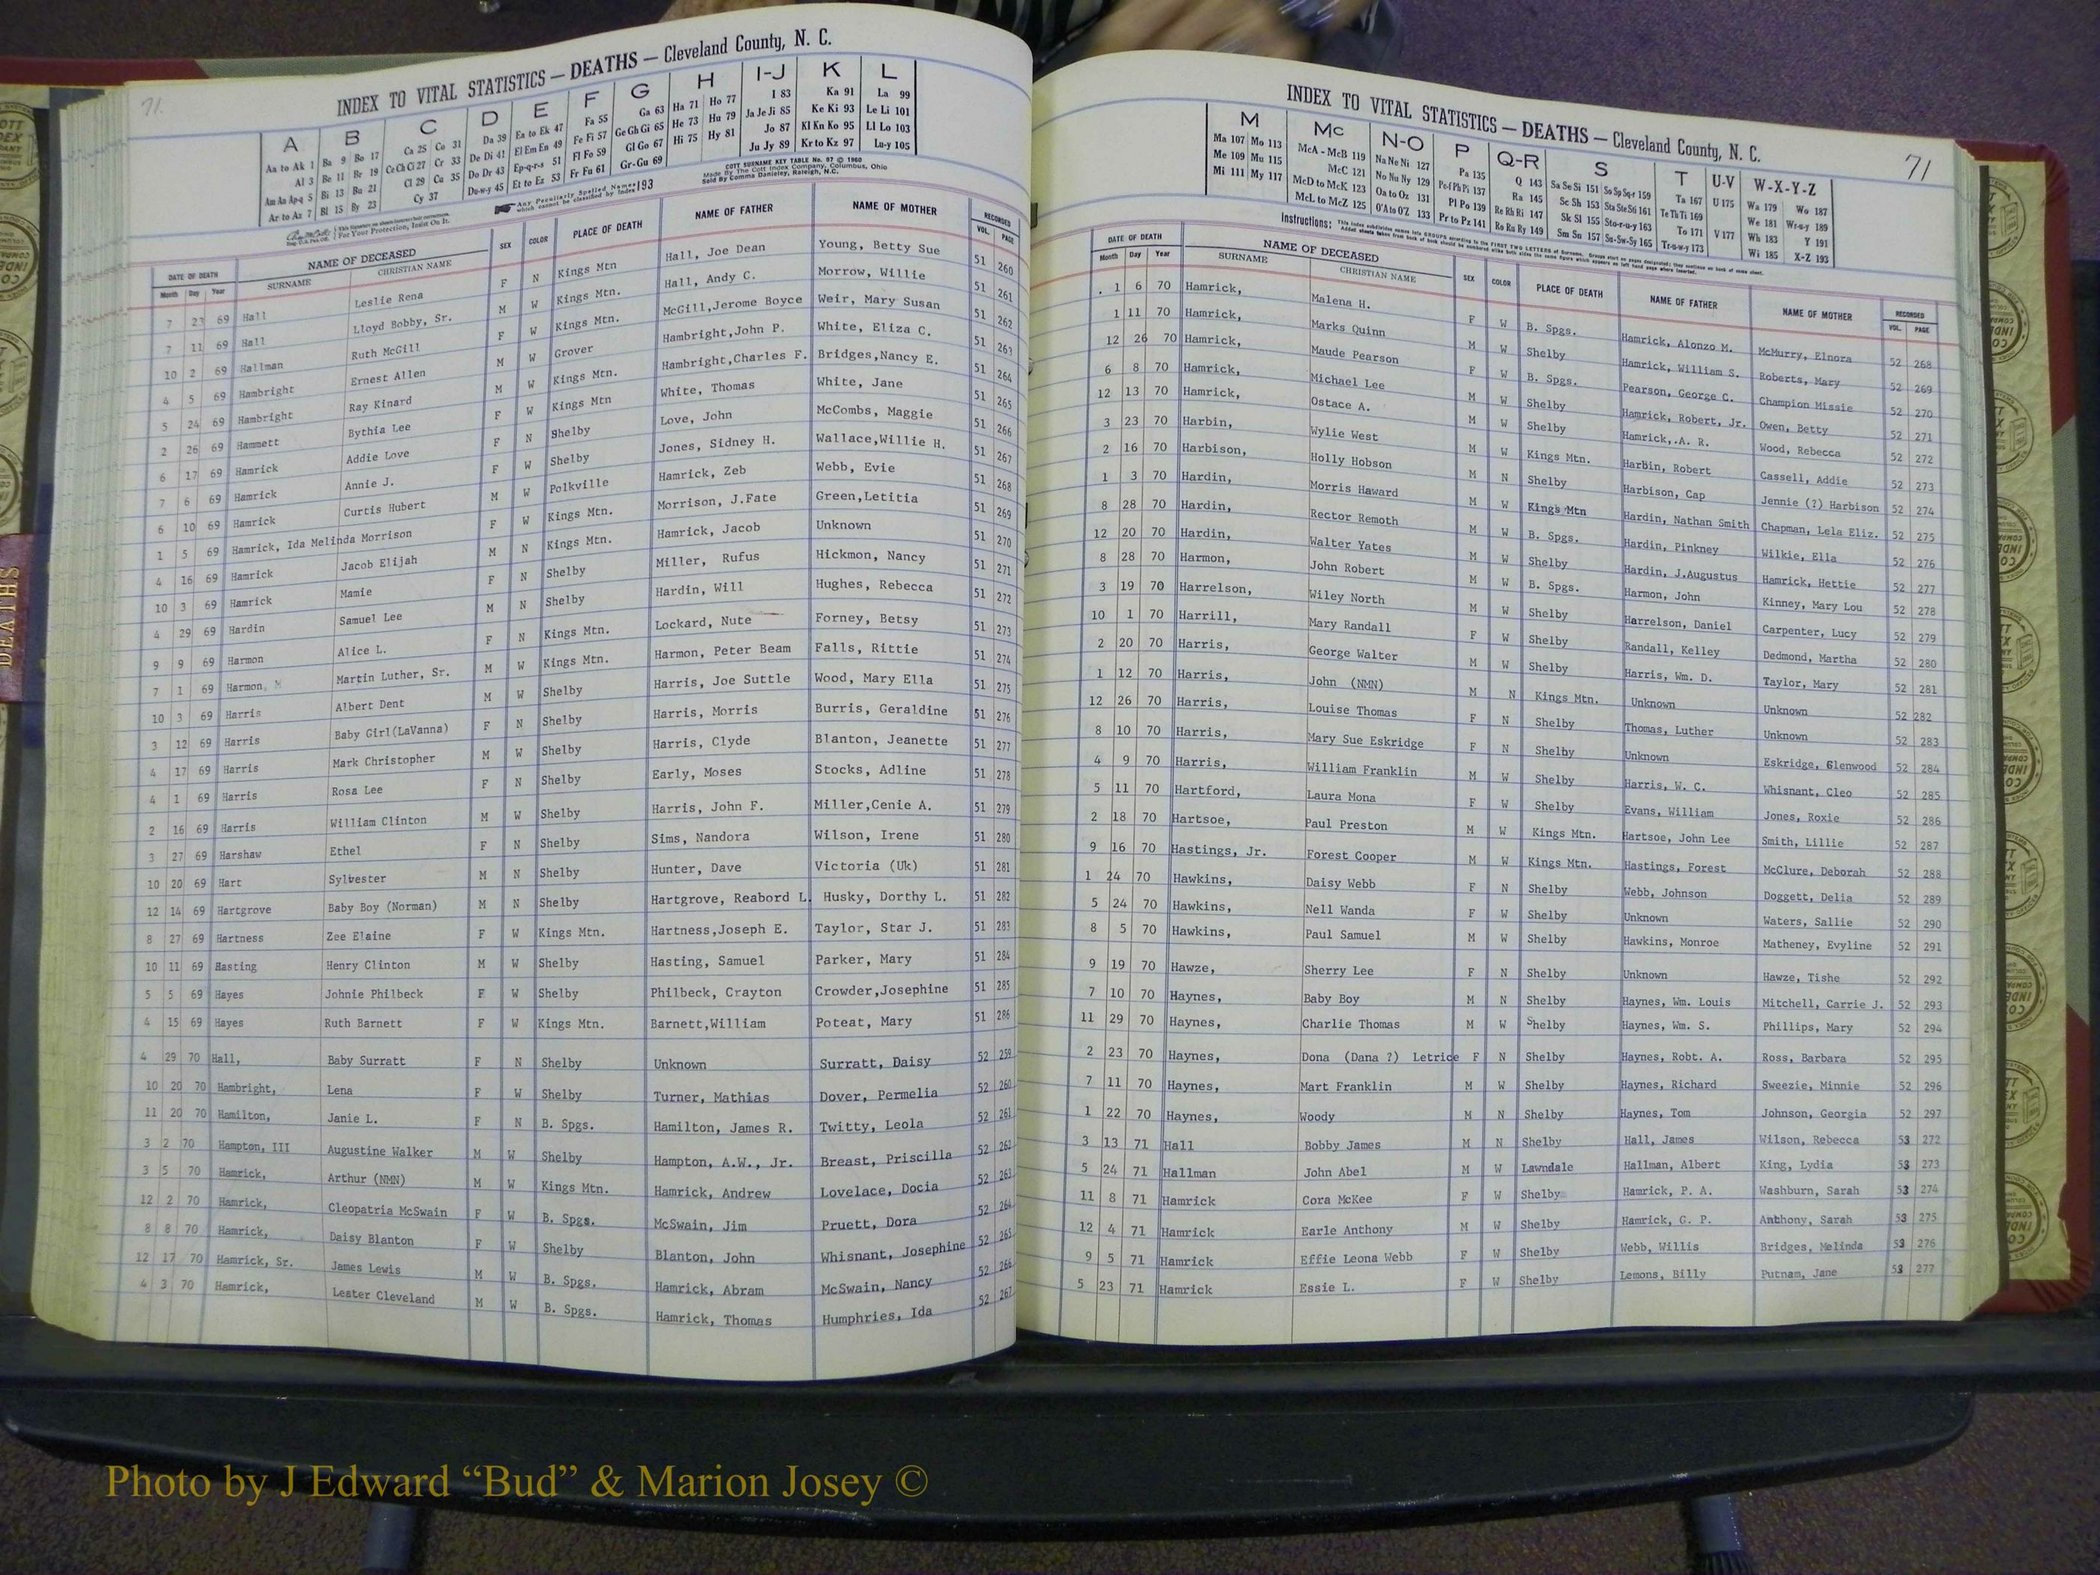 71.
INDEX TO VITAL STATISTICS — DEATHS — Cleveland County, N. C.
A B C D E F G H I-J K L
Aa to Ak 1 Ba 9 Bo 17 Ca 25 Co 31 Da 39 Ea to Ek 47 Fa 55 Ga 63 Ha 71 Ho 77 I 83 Ka 91 La 99
Al 3 Be 11 Br 19 Ce Ch Ci 27 Cr 33 De Di 41 El Em En 49 Fe Fi 57 Ge Gh Gi 65 He 73 Hu 79 Ja Je Ji 85 Ke Ki 93 Le Li 101
Am An Ap-q 5 Bi 13 Bu 21 Cl 29 Cu 35 Do Dr 43 Ep-q-r-s 51 Fl Fo 59 Gl Go 67 Hi 75 Hy 81 Jo 87 Kl Kn Ko 95 Ll Lo 103
Ar to Az 7 Bl 15 By 23 Cy 37 Du-w-y 45 Et to Ez 53 Fr Fu 61 Gr-Gu 69 Ju Jy 89 Kr to Kz 97 Lu-y 105
Any Peculiarly Spelled Names which cannot be classified by Index 193
COTT SURNAME KEY TABLE No. 97 © 1960
Made By The Cott Index Company, Columbus, Ohio
Sold By Comma Danieley, Raleigh, N.C.
For Your Protection, Insist On It.
DATE OF DEATH NAME OF DECEASED SEX COLOR PLACE OF DEATH NAME OF FATHER NAME OF MOTHER RECORDED
Month Day Year SURNAME CHRISTIAN NAME VOL. PAGE
7 23 69 Hall Leslie Rena F N Kings Mtn Hall, Joe Dean Young, Betty Sue 51 260
7 11 69 Hall Lloyd Bobby, Sr. M W Kings Mtn. Hall, Andy C. Morrow, Willie 51 261
10 2 69 Hallman Ruth McGill F W Kings Mtn. McGill,Jerome Boyce Weir, Mary Susan 51 262
4 5 69 Hambright Ernest Allen M W Grover Hambright,John P. White, Eliza C. 51 263
5 24 69 Hambright Ray Kinard M W Kings Mtn. Hambright,Charles F. Bridges,Nancy E. 51 264
2 26 69 Hammett Bythia Lee F W Kings Mtn White, Thomas White, Jane 51 265
6 17 69 Hamrick Addie Love F N Shelby Love, John McCombs, Maggie 51 266
7 6 69 Hamrick Annie J. F W Shelby Jones, Sidney H. Wallace,Willie H. 51 267
6 10 69 Hamrick Curtis Hubert M W Polkville Hamrick, Zeb Webb, Evie 51 268
1 5 69 Hamrick, Ida Melinda Morrison F W Kings Mtn. Morrison, J.Fate Green,Letitia 51 269
4 16 69 Hamrick Jacob Elijah M N Kings Mtn. Hamrick, Jacob Unknown 51 270
10 3 69 Hamrick Mamie F N Shelby Miller, Rufus Hickmon, Nancy 51 271
4 29 69 Hardin Samuel Lee M N Shelby Hardin, Will Hughes, Rebecca 51 272
9 9 69 Harmon Alice L. F N Kings Mtn. Lockard, Nute Forney, Betsy 51 273
7 1 69 Harmon, M Martin Luther, Sr. M W Kings Mtn. Harmon, Peter Beam Falls, Rittie 51 274
10 3 69 Harris Albert Dent M W Shelby Harris, Joe Suttle Wood, Mary Ella 51 275
3 12 69 Harris Baby Girl(LaVanna) F N Shelby Harris, Morris Burris, Geraldine 51 276
4 17 69 Harris Mark Christopher M W Shelby Harris, Clyde Blanton, Jeanette 51 277
4 1 69 Harris Rosa Lee F N Shelby Early, Moses Stocks, Adline 51 278
2 16 69 Harris William Clinton M W Shelby Harris, John F. Miller,Cenie A. 51 279
3 27 69 Harshaw Ethel F N Shelby Sims, Nandora Wilson, Irene 51 280
10 20 69 Hart Sylvester M N Shelby Hunter, Dave Victoria (Uk) 51 281
12 14 69 Hartgrove Baby Boy (Norman) M N Shelby Hartgrove, Reabord L. Husky, Dorthy L. 51 282
8 27 69 Hartness Zee Elaine F W Kings Mtn. Hartness,Joseph E. Taylor, Star J. 51 283
10 11 69 Hasting Henry Clinton M W Shelby Hasting, Samuel Parker, Mary 51 284
5 5 69 Hayes Johnie Philbeck F W Shelby Philbeck, Crayton Crowder,Josephine 51 285
4 15 69 Hayes Ruth Barnett F W Kings Mtn. Barnett,William Poteat, Mary 51 286
4 29 70 Hall, Baby Surratt F N Shelby Unknown Surratt, Daisy 52 259
10 20 70 Hambright, Lena F W Shelby Turner, Mathias Dover, Permelia 52 260
11 20 70 Hamilton, Janie L. F N B. Spgs. Hamilton, James R. Twitty, Leola 52 261
3 2 70 Hampton, III Augustine Walker M W Shelby Hampton, A.W., Jr. Breast, Priscilla 52 262
3 5 70 Hamrick, Arthur (NMN) M W Kings Mtn. Hamrick, Andrew Lovelace, Docia 52 263
12 2 70 Hamrick, Cleopatria McSwain F W B. Spgs. McSwain, Jim Pruett, Dora 52 264
8 8 70 Hamrick, Daisy Blanton F W Shelby Blanton, John Whisnant, Josephine 52 265
12 17 70 Hamrick, Sr. James Lewis M W B. Spgs. Hamrick, Abram McSwain, Nancy 52 266
4 3 70 Hamrick, Lester Cleveland M W B. Spgs. Hamrick, Thomas Humphries, Ida 52 267
INDEX TO VITAL STATISTICS — DEATHS — Cleveland County, N. C.
71
M Mc N-O P Q-R S T U-V W-X-Y-Z
Ma 107 Mo 113 McA - McB 119 Na Ne Ni 127 Pa 135 Q 143 Sa Se Si 151 So Sp Sq-r 159 Ta 167 U 175 Wa 179 Wo 187
Me 109 Mu 115 McC 121 No Nu Ny 129 Pe-f Ph Pi 137 Ra 145 Sc Sh 153 Sta Ste Sti 161 Te Th Ti 169 We 181 Wr-u-y 189
Mi 111 My 117 McD to McK 123 Oa to Oz 131 Pl Po 139 Re Rh Ri 147 Sk Sl 155 Sto-r-u-y 163 To 171 V 177 Wh 183 Y 191
McL to McZ 125 O'A to O'Z 133 Pr to Pz 141 Ro Ru Ry 149 Sm Sn 157 Su-Sw-Sy 165 Tr-u-w-y 173 Wi 185 X-Z 193
Instructions:
DATE OF DEATH NAME OF DECEASED SEX COLOR PLACE OF DEATH NAME OF FATHER NAME OF MOTHER RECORDED
Month Day Year SURNAME CHRISTIAN NAME VOL. PAGE
1 6 70 Hamrick, Malena H. F W B. Spgs. Hamrick, Alonzo M. McMurry, Elnora 52 268
1 11 70 Hamrick, Marks Quinn M W Shelby Hamrick, William S. Roberts, Mary 52 269
12 26 70 Hamrick, Maude Pearson F W B. Spgs. Pearson, George C. Champion Missie 52 270
6 8 70 Hamrick, Michael Lee M W Shelby Hamrick, Robert, Jr. Owen, Betty 52 271
12 13 70 Hamrick, Ostace A. M W Shelby Hamrick,.A. R. Wood, Rebecca 52 272
3 23 70 Harbin, Wylie West M W Kings Mtn. Harbin, Robert Cassell, Addie 52 273
2 16 70 Harbison, Holly Hobson M N Shelby Harbison, Cap Jennie (?) Harbison 52 274
1 3 70 Hardin, Morris Haward M W Kings Mtn Hardin, Nathan Smith Chapman, Lela Eliz. 52 275
8 28 70 Hardin, Rector Remoth M W B. Spgs. Hardin, Pinkney Wilkie, Ella 52 276
12 20 70 Hardin, Walter Yates M W Shelby Hardin, J.Augustus Hamrick, Hettie 52 277
8 28 70 Harmon, John Robert M W B. Spgs. Harmon, John Kinney, Mary Lou 52 278
3 19 70 Harrelson, Wiley North M W Shelby Harrelson, Daniel Carpenter, Lucy 52 279
10 1 70 Harrill, Mary Randall F W Shelby Randall, Kelley Dedmond, Martha 52 280
2 20 70 Harris, George Walter M W Shelby Harris, Wm. D. Taylor, Mary 52 281
1 12 70 Harris, John (NMN) M N Kings Mtn. Unknown Unknown 52 282
12 26 70 Harris, Louise Thomas F N Shelby Thomas, Luther Unknown 52 283
8 10 70 Harris, Mary Sue Eskridge F N Shelby Unknown Eskridge, Glenwood 52 284
4 9 70 Harris, William Franklin M W Shelby Harris, W. C. Whisnant, Cleo 52 285
5 11 70 Hartford, Laura Mona F W Shelby Evans, William Jones, Roxie 52 286
2 18 70 Hartsoe, Paul Preston M W Kings Mtn. Hartsoe, John Lee Smith, Lillie 52 287
9 16 70 Hastings, Jr. Forest Cooper M W Kings Mtn. Hastings, Forest McClure, Deborah 52 288
1 24 70 Hawkins, Daisy Webb F N Shelby Webb, Johnson Doggett, Delia 52 289
5 24 70 Hawkins, Nell Wanda F W Shelby Unknown Waters, Sallie 52 290
8 5 70 Hawkins, Paul Samuel M W Shelby Hawkins, Monroe Matheney, Evyline 52 291
9 19 70 Hawze, Sherry Lee F N Shelby Unknown Hawze, Tishe 52 292
7 10 70 Haynes, Baby Boy M N Shelby Haynes, Wm. Louis Mitchell, Carrie J. 52 293
11 29 70 Haynes, Charlie Thomas M W Shelby Haynes, Wm. S. Phillips, Mary 52 294
2 23 70 Haynes, Dona (Dana ?) Letrice F N Shelby Haynes, Robt. A. Ross, Barbara 52 295
7 11 70 Haynes, Mart Franklin M W Shelby Haynes, Richard Sweezie, Minnie 52 296
1 22 70 Haynes, Woody M N Shelby Haynes, Tom Johnson, Georgia 52 297
3 13 71 Hall Bobby James M N Shelby Hall, James Wilson, Rebecca 53 272
5 24 71 Hallman John Abel M W Lawndale Hallman, Albert King, Lydia 53 273
11 8 71 Hamrick Cora McKee F W Shelby Hamrick, P. A. Washburn, Sarah 53 274
12 4 71 Hamrick Earle Anthony M W Shelby Hamrick, G. P. Anthony, Sarah 53 275
9 5 71 Hamrick Effie Leona Webb F W Shelby Webb, Willis Bridges, Melinda 53 276
5 23 71 Hamrick Essie L. F W Shelby Lemons, Billy Putnam, Jane 53 277
DEATHS
Photo by J Edward “Bud” & Marion Josey ©